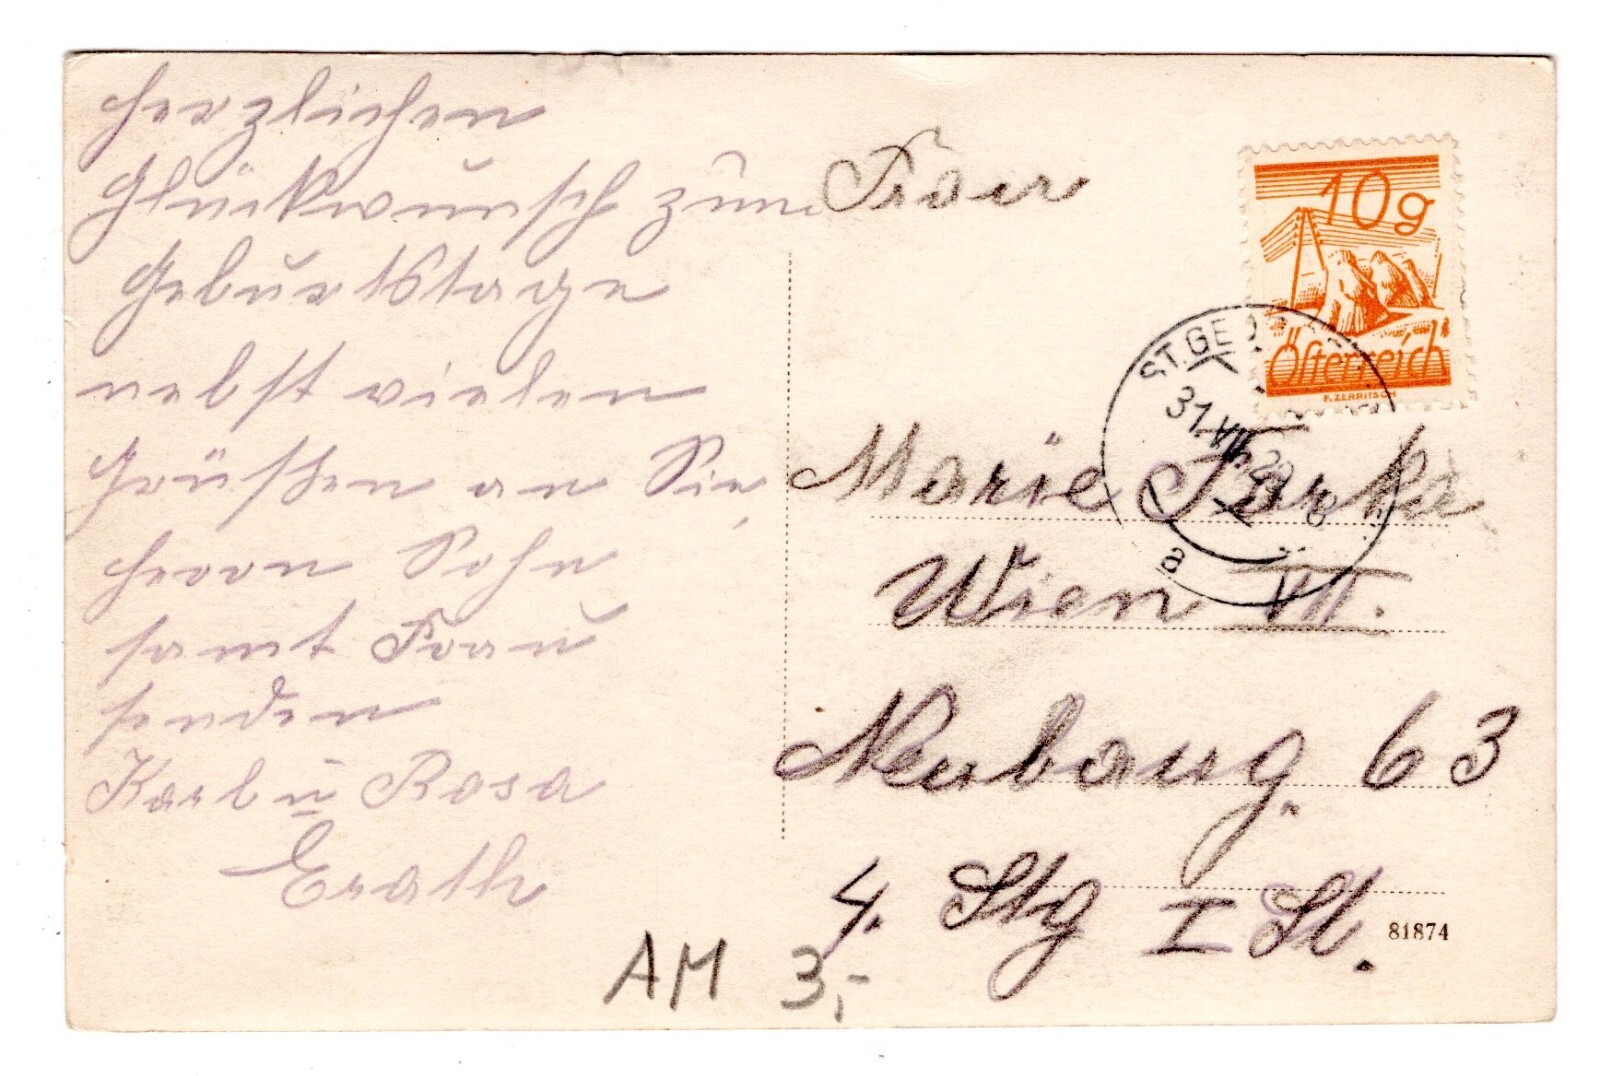 Herzlichen
Glückwunsch zum
Geburtstage
nebst vielen
Grüßen an Sie,
Herrn Sohn
samt Frau
senden
Karl u Rosa
Erath
Frau
Marie
Wien VII.
Neubaug. 63
4. Stg I St.
10g
Österreich
F. ZERRITSCH
ST. GE
31. VII 29
a
81874
AM 3,-